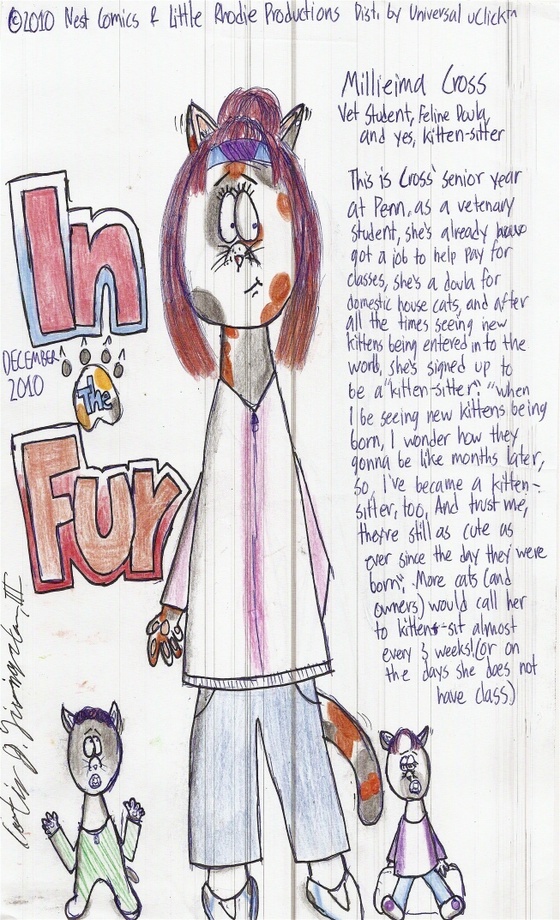 ©2010 Nest Comics & Little Rhodie Productions Dist. by Universal uClick™
Millieima Cross
Vet Student, Feline Doula,
and yes, kitten-sitter
This is Cross' senior year
at Penn, as a vetenary
student, she's already
got a job to help pay for
classes, she's a doula for
domestic house cats, and after
all the times seeing new
kittens being entered into the
world, she's signed up to
be a "kitten-sitter" "when
I be seeing new kittens being
born, I wonder how they
gonna be like months later,
so, I've became a kitten-
sitter, too, And trust me,
they're still as cute as
ever since the day they were
born". More cats (and
owners) would call her
to kitten-sit almost
every 3 weeks! (or on
the days she does not
have class)
In
The
Fur
DECEMBER
2010